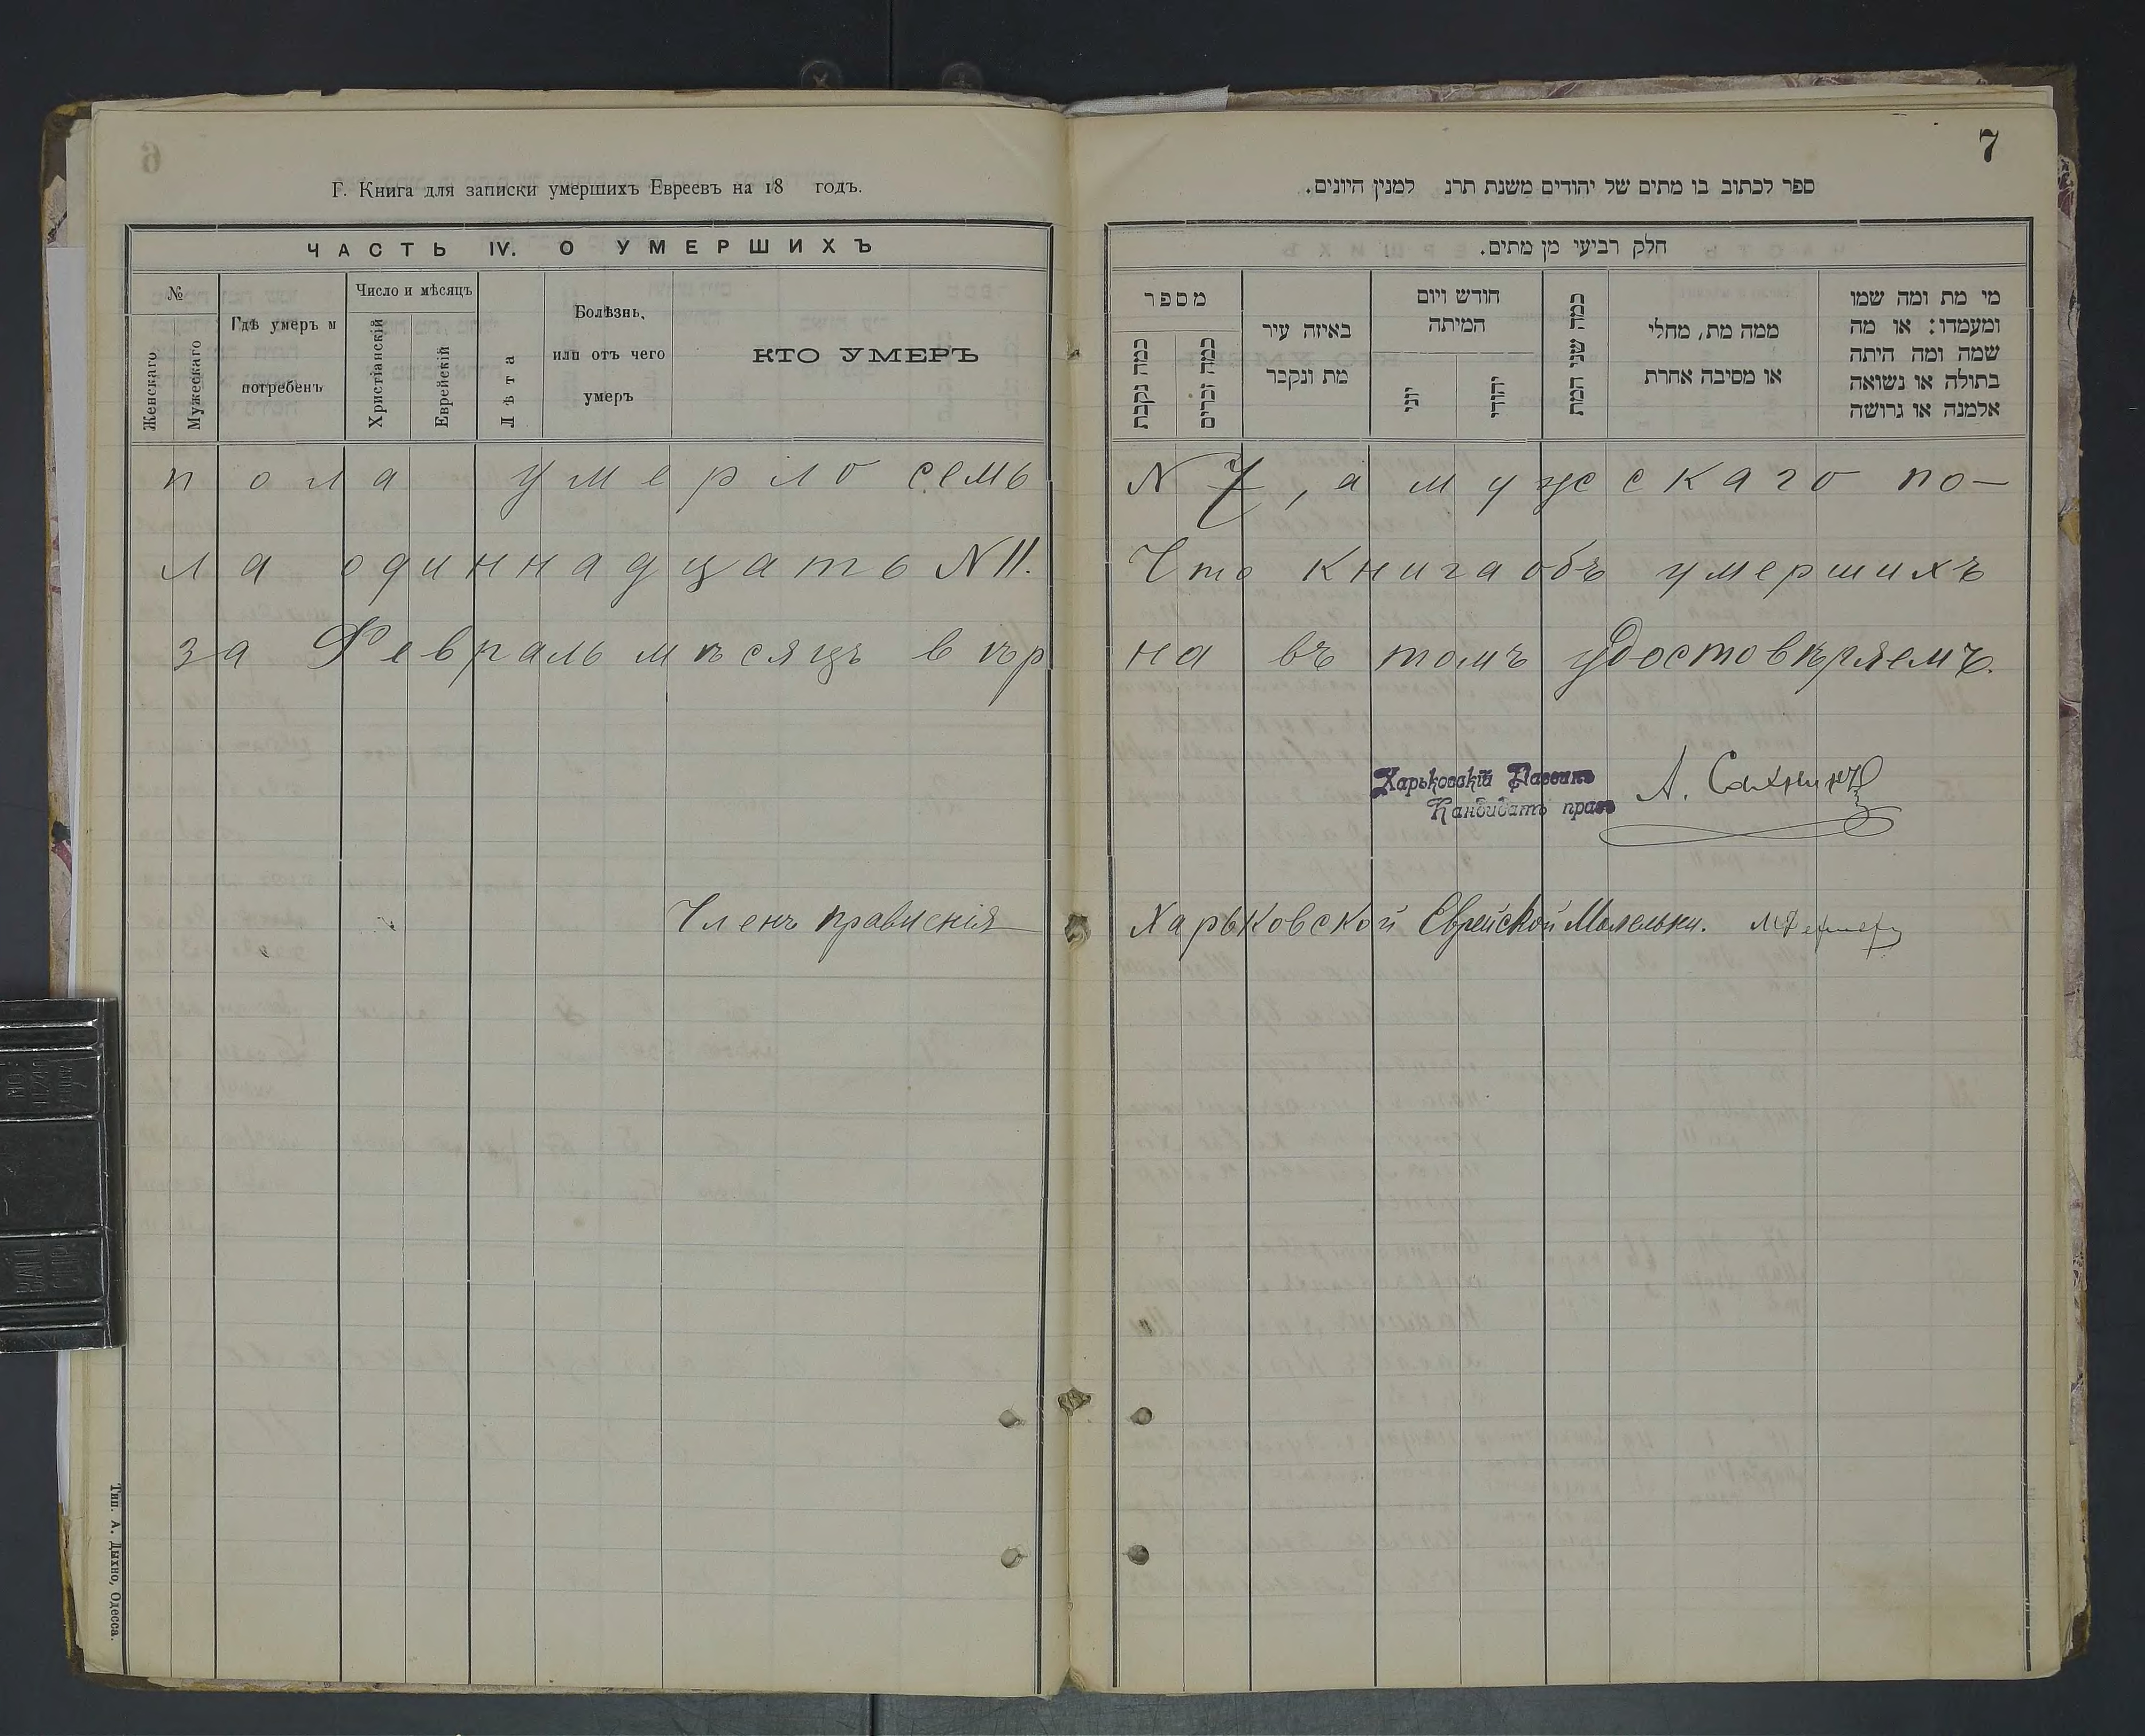 7
Г. Книга для записки умершихъ Евреевъ на 18 годъ.
ЧАСТЬ IV. О УМЕРШИХЪ
№
Женскаго
Мужескаго
Гдѣ умеръ и
погребенъ
Число и мѣсяцъ
Христіанскій
Еврейскій
Лѣта
Болѣзнь,
или отъ чего
умеръ
КТО УМЕРЪ
ספר לכתוב בו מתים של יהודים משנת תרנ למנין היונים.
חלק רביעי מן מתים.
מספר
כמה נקבת
כמה זכרים
באיזה עיר
מת ונקבר
חודש ויום
המיתה
יוני
יהודי
כמה שני המת
ממה מת, מחלי
או מסיבה אחרת
מי מת ומה שמו
ומעמדו: או מה
שמה ומה היתה
בתולה או נשואה
אלמנה או גרושה
пола умерло семь N 7, а мужескаго по-
ла одиннадцать N 11. Что книга объ умершихъ
за Февраль мѣсяцъ вѣрна въ томъ удостовѣряемъ.
Харьковскій Раввинъ
Кандидатъ правъ
А.
Членъ правленія Харьковской Еврейской Молельни.
Тип. А. Дыхно, Одесса.